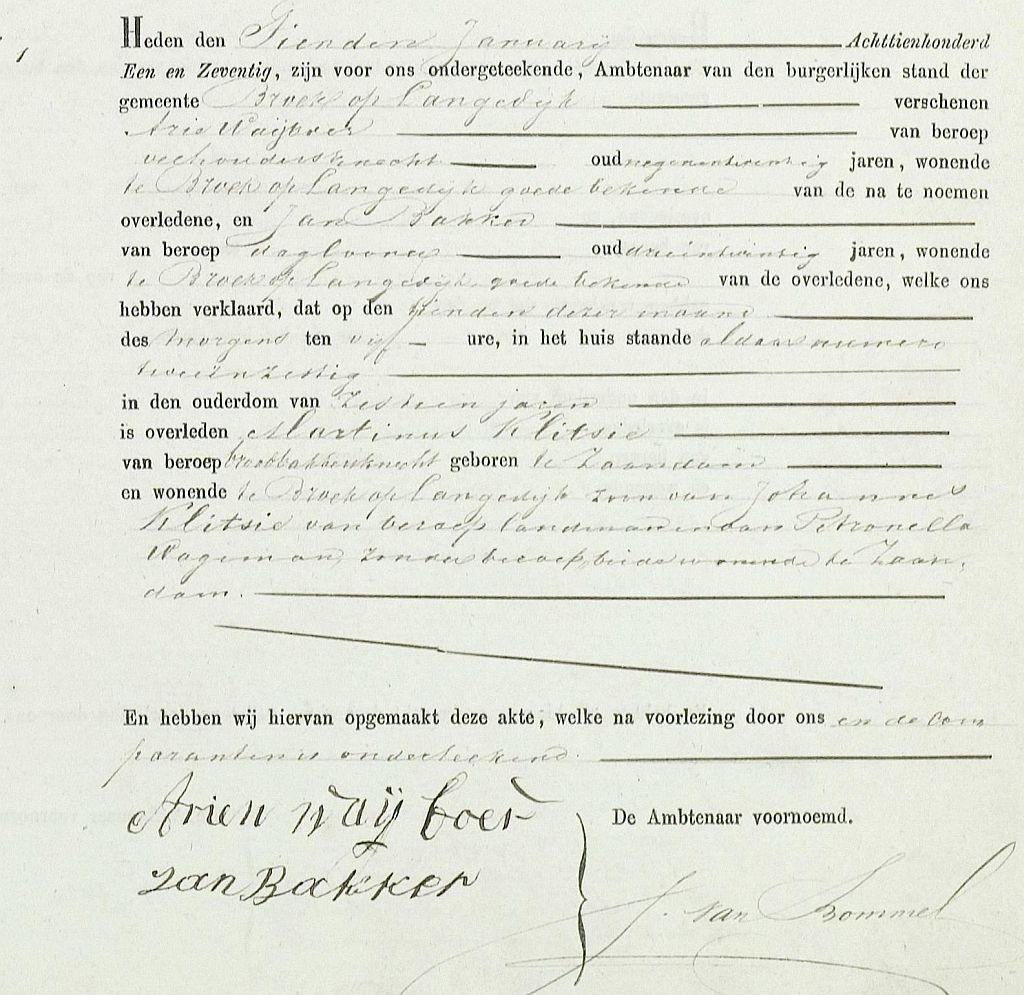 1
Heden den Tienden January Achttienhonderd
Een en Zeventig, zijn voor ons ondergeteekende, Ambtenaar van den burgerlijken stand der
gemeente Broek op Langedijk verschenen
Arie Waijboer van beroep
veehoudersknecht oud negenentwintig jaren, wonende
te Broek op Langedijk goede bekende van de na te noemen
overledene, en Jan Bakker
van beroep daglooner oud drieëntwintig jaren, wonende
te Broek op Langedijk goede bekende van de overledene, welke ons
hebben verklaard, dat op den tienden dezer maand
des morgens ten vijf ure, in het huis staande aldaar numero
tweeënzestig
in den ouderdom van zestien jaren
is overleden Martinus Klitsie
van beroep broodbakkersknecht geboren te Zaandam
en wonende te Broek op Langedijk zoon van Johannes
Klitsie van beroep landman en van Petronella
Wageman, zonder beroep, beide wonende te Zaan-
dam.
En hebben wij hiervan opgemaakt deze akte, welke na voorlezing door ons en de com
paranten is onderteekend.
Arien Waijboer De Ambtenaar voornoemd.
Jan Bakker
J. van Bommel